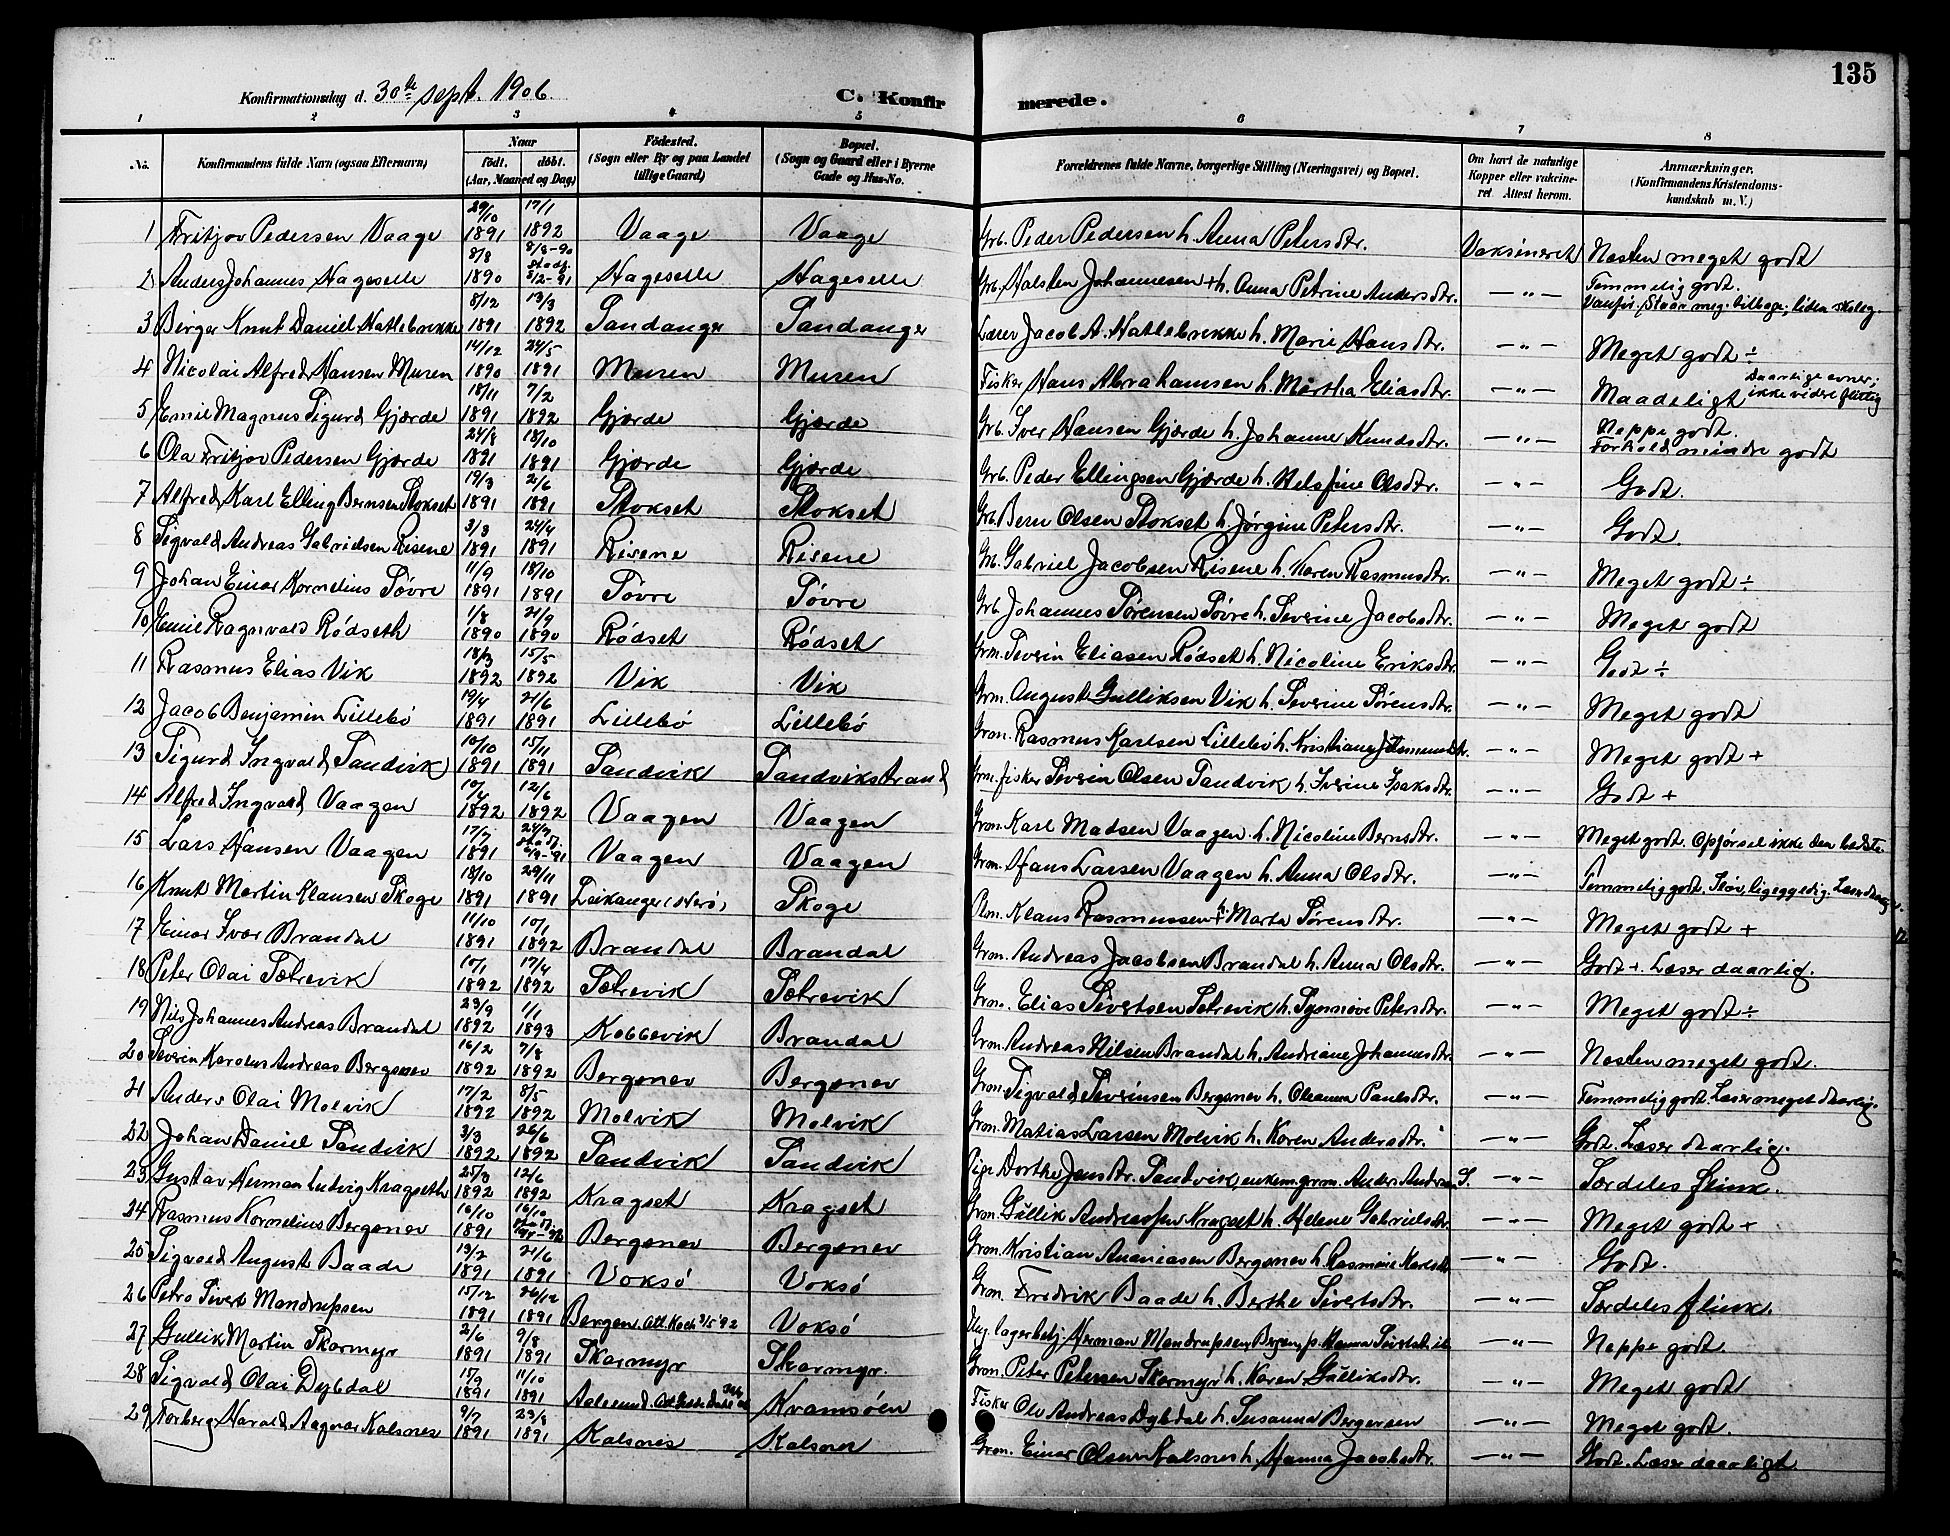 135
Konfirmationsdag d. 30te sept. 1906. C. Konfirmerede.
1 2 3 4 5 6 7 8
No. Konfirmandens fulde Navn (ogsaa Efternavn) Naar født, døbt. (Aar, Maaned og Dag) Fødested. (Sogn eller By og paa Landet tillige Gaard) Bopæl. (Sogn og Gaard eller i Byerne Gade og Hus-No. Forældrenes fulde Navne, borgerlige Stilling (Næringsvei) og Bopæl. Om havt de naturlige Kopper eller vakcineret. Attest herom. Anmærkninger. (Konfirmandens Kristendomskundskab m. V.)
1 Fritjov Pedersen Vaage 29/10 1891 17/1 1892 Vaage Vaage Grb. Peder Pedersen h. Anna Petersdtr. Vaksineret Næsten meget godt
2 Anders Johannes Hageselle 8/8 1890 8/8-90 stadf. 5/2-91 Hageselle Hageselle Grb. Halsten Johannesen + h. Anna Petrine Andersdtr. —„— Temmelig godt. Vanfør, Staar meg. tilbage; liden skoleg.
3 Birger Knut Daniel Hatlebrekke 8/12 1891 13/3 1892 Sandanger Sandanger Lærer Jacob A. Hatlebrekke h. Marie Hansdtr. —„— Meget godt ÷
4 Nicolai Alfred Hansen Muren 14/12 1890 24/5 1891 Muren Muren Fisker Hans Abrahamsen h. Martha Eliasdtr. —„— Maadeligt Daarlige evner; ikke videre flittig
5 Emil Magnus Sigurd Gjærde 18/11 1891 7/2 1892 Gjærde Gjærde Grb. Iver Hansen Gjærde h. Johanne Knudsdtr. —„— Neppe godt. Forhold mindre godt
6 Ola Fritjov Pedersen Gjærde 24/8 1891 18/10 1891 Gjærde Gjærde Grb. Peder Ellingsen Gjærde h. Helsfine Olsdtr. —„— Godt.
7 Alfred Karl Elling Bernsen Stokset 19/3 1891 2/6 1891 Stokset Stokset Grb. Bern Olsen Stokset h. Jørgine Petersdtr. —„— Godt.
8 Sigvald Andreas Gabrielsen Risene 3/3 1891 24/4 1891 Risene Risene Grb. Gabriel Jacobsen Risene h. Karen Rasmusdtr. —„— Meget godt ÷
9 Johan Einar Kornelius Søvre 11/9 1891 18/10 1891 Søvre Søvre Grb. Johannes Sørensen Søvre h. Severine Jacobsdtr. —„— Meget godt
10 Emil Ragnvald Rødseth 1/8 1890 21/9 1890 Rødset Rødset Grm. Severin Eliasen Rødset h. Nicoline Eriksdtr. —„— Godt ÷
11 Rasmus Elias Vik 18/3 1892 15/5 1892 Vik Vik Grm. August Gulliksen Vik h. Severine Sørensdtr. —„— Meget godt
12 Jacob Benjamin Lillebø 19/4 1891 21/6 1891 Lillebø Lillebø Grm. Rasmus Karlsen Lillebø h. Kristiane —„— Meget godt +
13 Sigurd Ingvald Sandvik 10/10 1891 15/11 1891 Sandvik Sandvikstrand Grm. fisker Severin Olsen Sandvik h. Iverine —„— Godt +
14 Alfred Ingvald Vaagen 10/4 1892 12/6 1892 Vaagen Vaagen Grm. Karl Madsen Vaagen h. Nicoline Bernsdtr. —„— Meget godt. Opførsel ikke den bedste.
15 Lars Hansen Vaagen 17/7 1891 24/7 stadf. 6/9-91 Vaagen Vaagen Grm. Hans Larsen Vaagen h. Anna Olsdtr. —„— Temmelig godt. Sløv, ligegyldig.
16 Knut Martin Klausen Skoge 18/10 1891 29/11 1891 Leikanger (Herø) Skoge Klaus Rasmussen h. + Marta Sørensdtr. —„— Meget godt +
17 Einar Ivar Brandal 11/10 1891 10/1 1892 Brandal Brandal Grm. Andreas Jacobsen Brandal h. Anna Olsdtr. —„— Godt +. Læser daarlig.
18 Peter Olai Sætrevik 10/1 1892 17/4 1892 Sætrevik Sætrevik Grm. Elias Sivertsen Sætrevik h. Synnøve Petersdtr. —„— Meget godt ÷
19 Nils Johannes Andreas Brandal 23/9 1892 1/1 1893 Kobbevik Brandal Grm. Andreas Nilsen Brandal h. Andriane Johannesdtr. —„— Næsten meget godt.
20 Severin Karolus Andreas Bergsnev 16/2 1892 7/8 1892 Bergsnev Bergsnev Grm. Sigvald Severinsen Bergsnev h. Oleanna Paulsdtr. —„— Temmelig godt. Læser meget daarlig.
21 Anders Olai Molvik 17/2 1892 8/5 1892 Molvik Molvik Grm. Matias Larsen Molvik h. Karen Andersdtr. —„— Godt. Læser daarlig.
22 Johan Daniel Sandvik 3/3 1892 26/6 1892 Sandvik Sandvik Pige Dorthe Jensdtr. Sandvik, enkem. grm. Anders Andersen S. —„— Særdeles flink.
23 Gustav Herman Ludvig Kragseth 25/3 1892 12/6 1892 Kragset Kragset Grm. Gullik Andreassen Kragset h. Helene Gabrielsdtr. —„— Meget godt +
24 Rasmus Kornelius Bergsnev 16/10 1891 16/10 Bergsnev Bergsnev Grm. Kristian Ananiasen Bergsnev h. Rasmine Karlsdtr. —„— Godt.
25 Sigvald August Baade 19/2 1891 21/6 1891 Voksø Voksø Grm. Fredrik Baade h. Berthe Sivertsdtr. —„— Særdeles flink.
26 Petro Sivert Mandrupsen 15/12 1891 26/12 1891 Bergen Att. Koch 3/5 92 Voksø Ung. lagerbetj. Herman Mandrupsen Bergen, p. Hanna —„— Neppe godt.
27 Gullik Martin Skarmyr 2/6 1891 9/8 1891 Skarmyr Skarmyr. Grm. Peter Petersen Skarmyr h. Karen Gulliksdtr. —„— Meget godt
28 Sigvald Olai Dybdal 15/9 1891 11/10 1891 Aalesund Kramsøen Fisker Ole Andreas Dybdal h. Susanna Bergersen —„— Meget godt.
29 Torberg Harald Ragnar Kalsnes 9/7 1891 23/8 1891 Kalsnes Kalsnes Grm. Einar Olsen Kalsnes h. Hanna Jacobsdtr. —„— Godt. Læser daarligt.